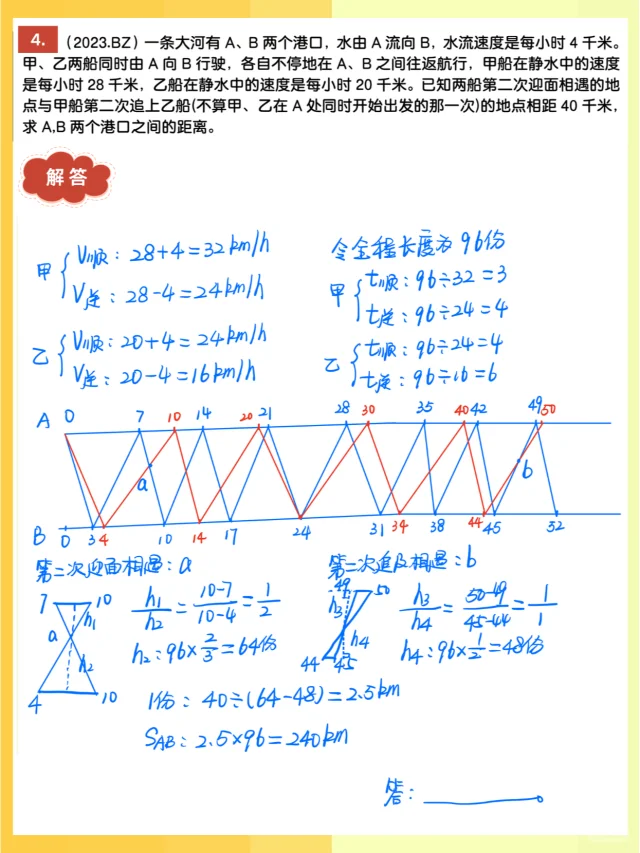 4. (2023.BZ) 一条大河有 A、B 两个港口，水由 A 流向 B，水流速度是每小时 4 千米。
甲、乙两船同时由 A 向 B 行驶，各自不停地在 A、B 之间往返航行，甲船在静水中的速度
是每小时 28 千米，乙船在静水中的速度是每小时 20 千米。已知两船第二次迎面相遇的地
点与甲船第二次追上乙船(不算甲、乙在 A 处同时开始出发的那一次)的地点相距 40 千米，
求 A,B 两个港口之间的距离。
解答
甲 { V顺：28+4=32km/h
V逆：28-4=24km/h
乙 { V顺：20+4=24km/h
V逆：20-4=16km/h
令全程长度为 96份
甲 { t顺：96÷32=3
t逆：96÷24=4
乙 { t顺：96÷24=4
t逆：96÷16=6
A 0 7 10 14 20 21 28 30 35 40 42 49 50
a b
B 0 3 4 10 14 17 24 31 34 38 44 45 52
第二次迎面相遇：a
7 10
h1
a
h2
4 10
h1/h2=(10-7)/(10-4)=1/2
h2：96×2/3=64份
第二次追及相遇：b
49 50
h3
h4
44 45
h3/h4=(50-49)/(45-44)=1/1
h4：96×1/2=48份
1份：40÷(64-48)=2.5km
SAB：2.5×96=240km
答：